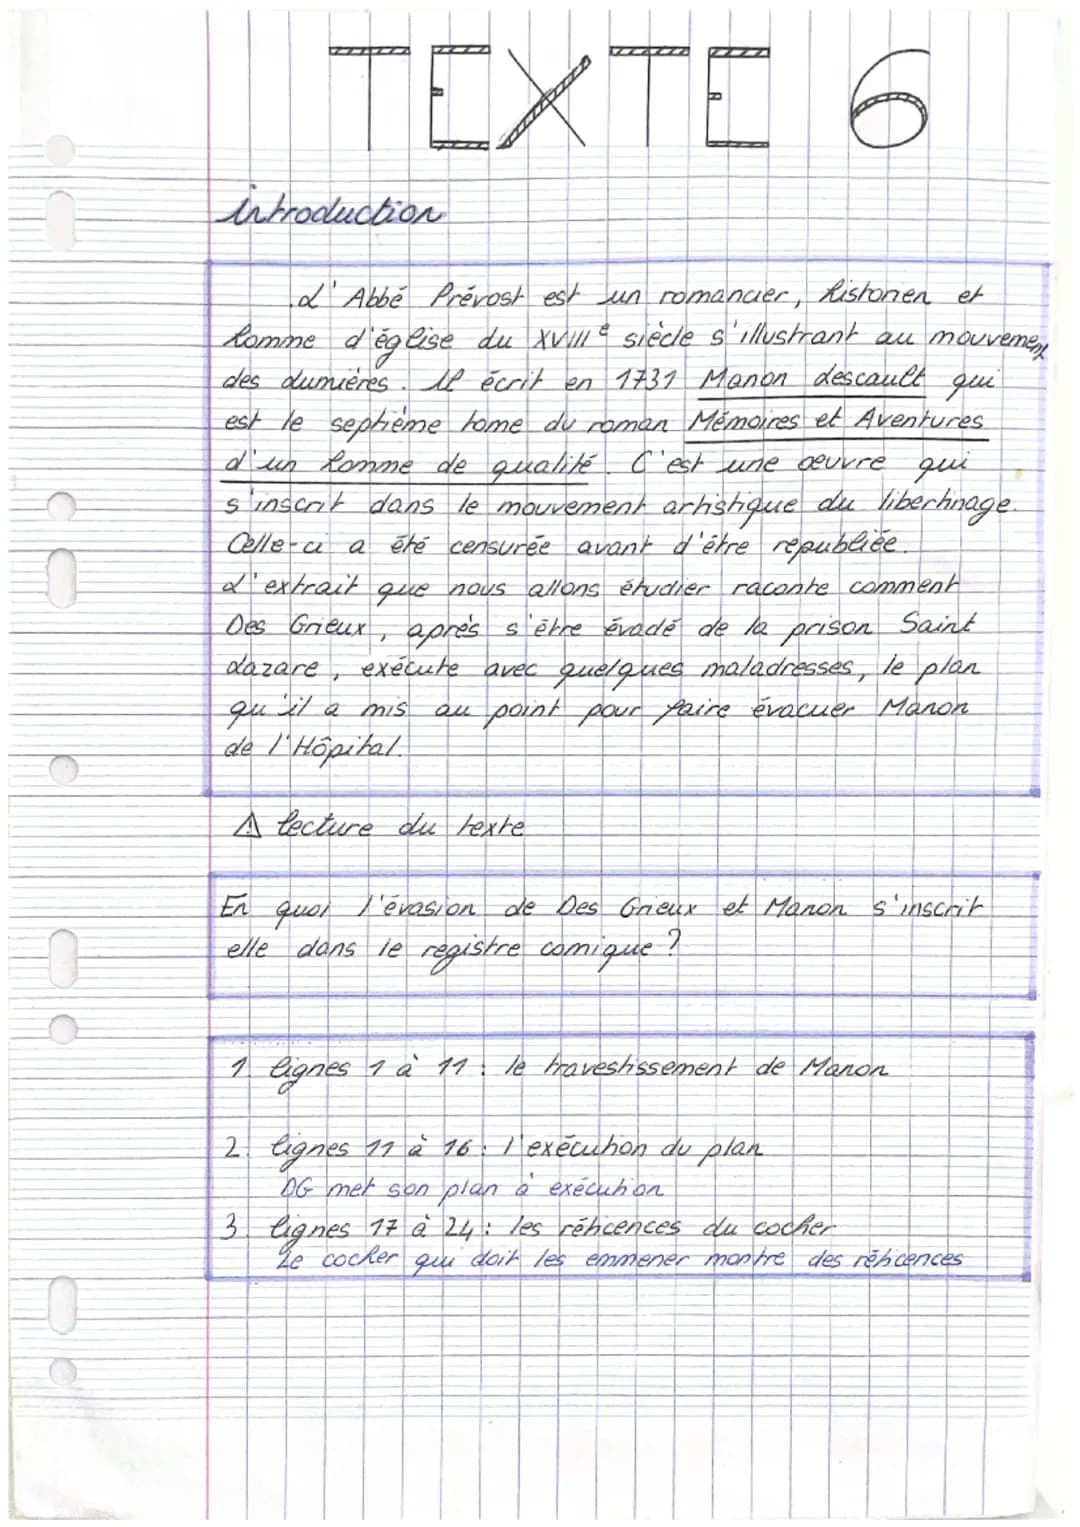 TEXTE 6
introduction
L'Abbé Prévost est un romancier, historien et
homme d'église du XVIIIe siècle s'illustrant au mouvement
des Lumières. Il écrit en 1731 Manon Lescault qui
est le septième tome du roman Mémoires et Aventures
d'un homme de qualité. C'est une œuvre qui
s'inscrit dans le mouvement artistique du libertinage.
Celle-ci a été censurée avant d'être republiée.
L'extrait que nous allons étudier raconte comment
Des Grieux, après s'être évadé de la prison Saint
Lazare, exécute avec quelques maladresses, le plan
qu'il a mis au point pour faire évacuer Manon
de l'Hôpital.
⚠ lecture du texte
En quoi l'évasion de Des Grieux et Manon s'inscrit
elle dans le registre comique ?
1. lignes 1 à 11 : le travestissement de Manon
2. lignes 11 à 16 : l'exécution du plan
DG met son plan à exécution
3. lignes 17 à 24 : les réticences du cocher
Le cocher qui doit les emmener montre des réticences